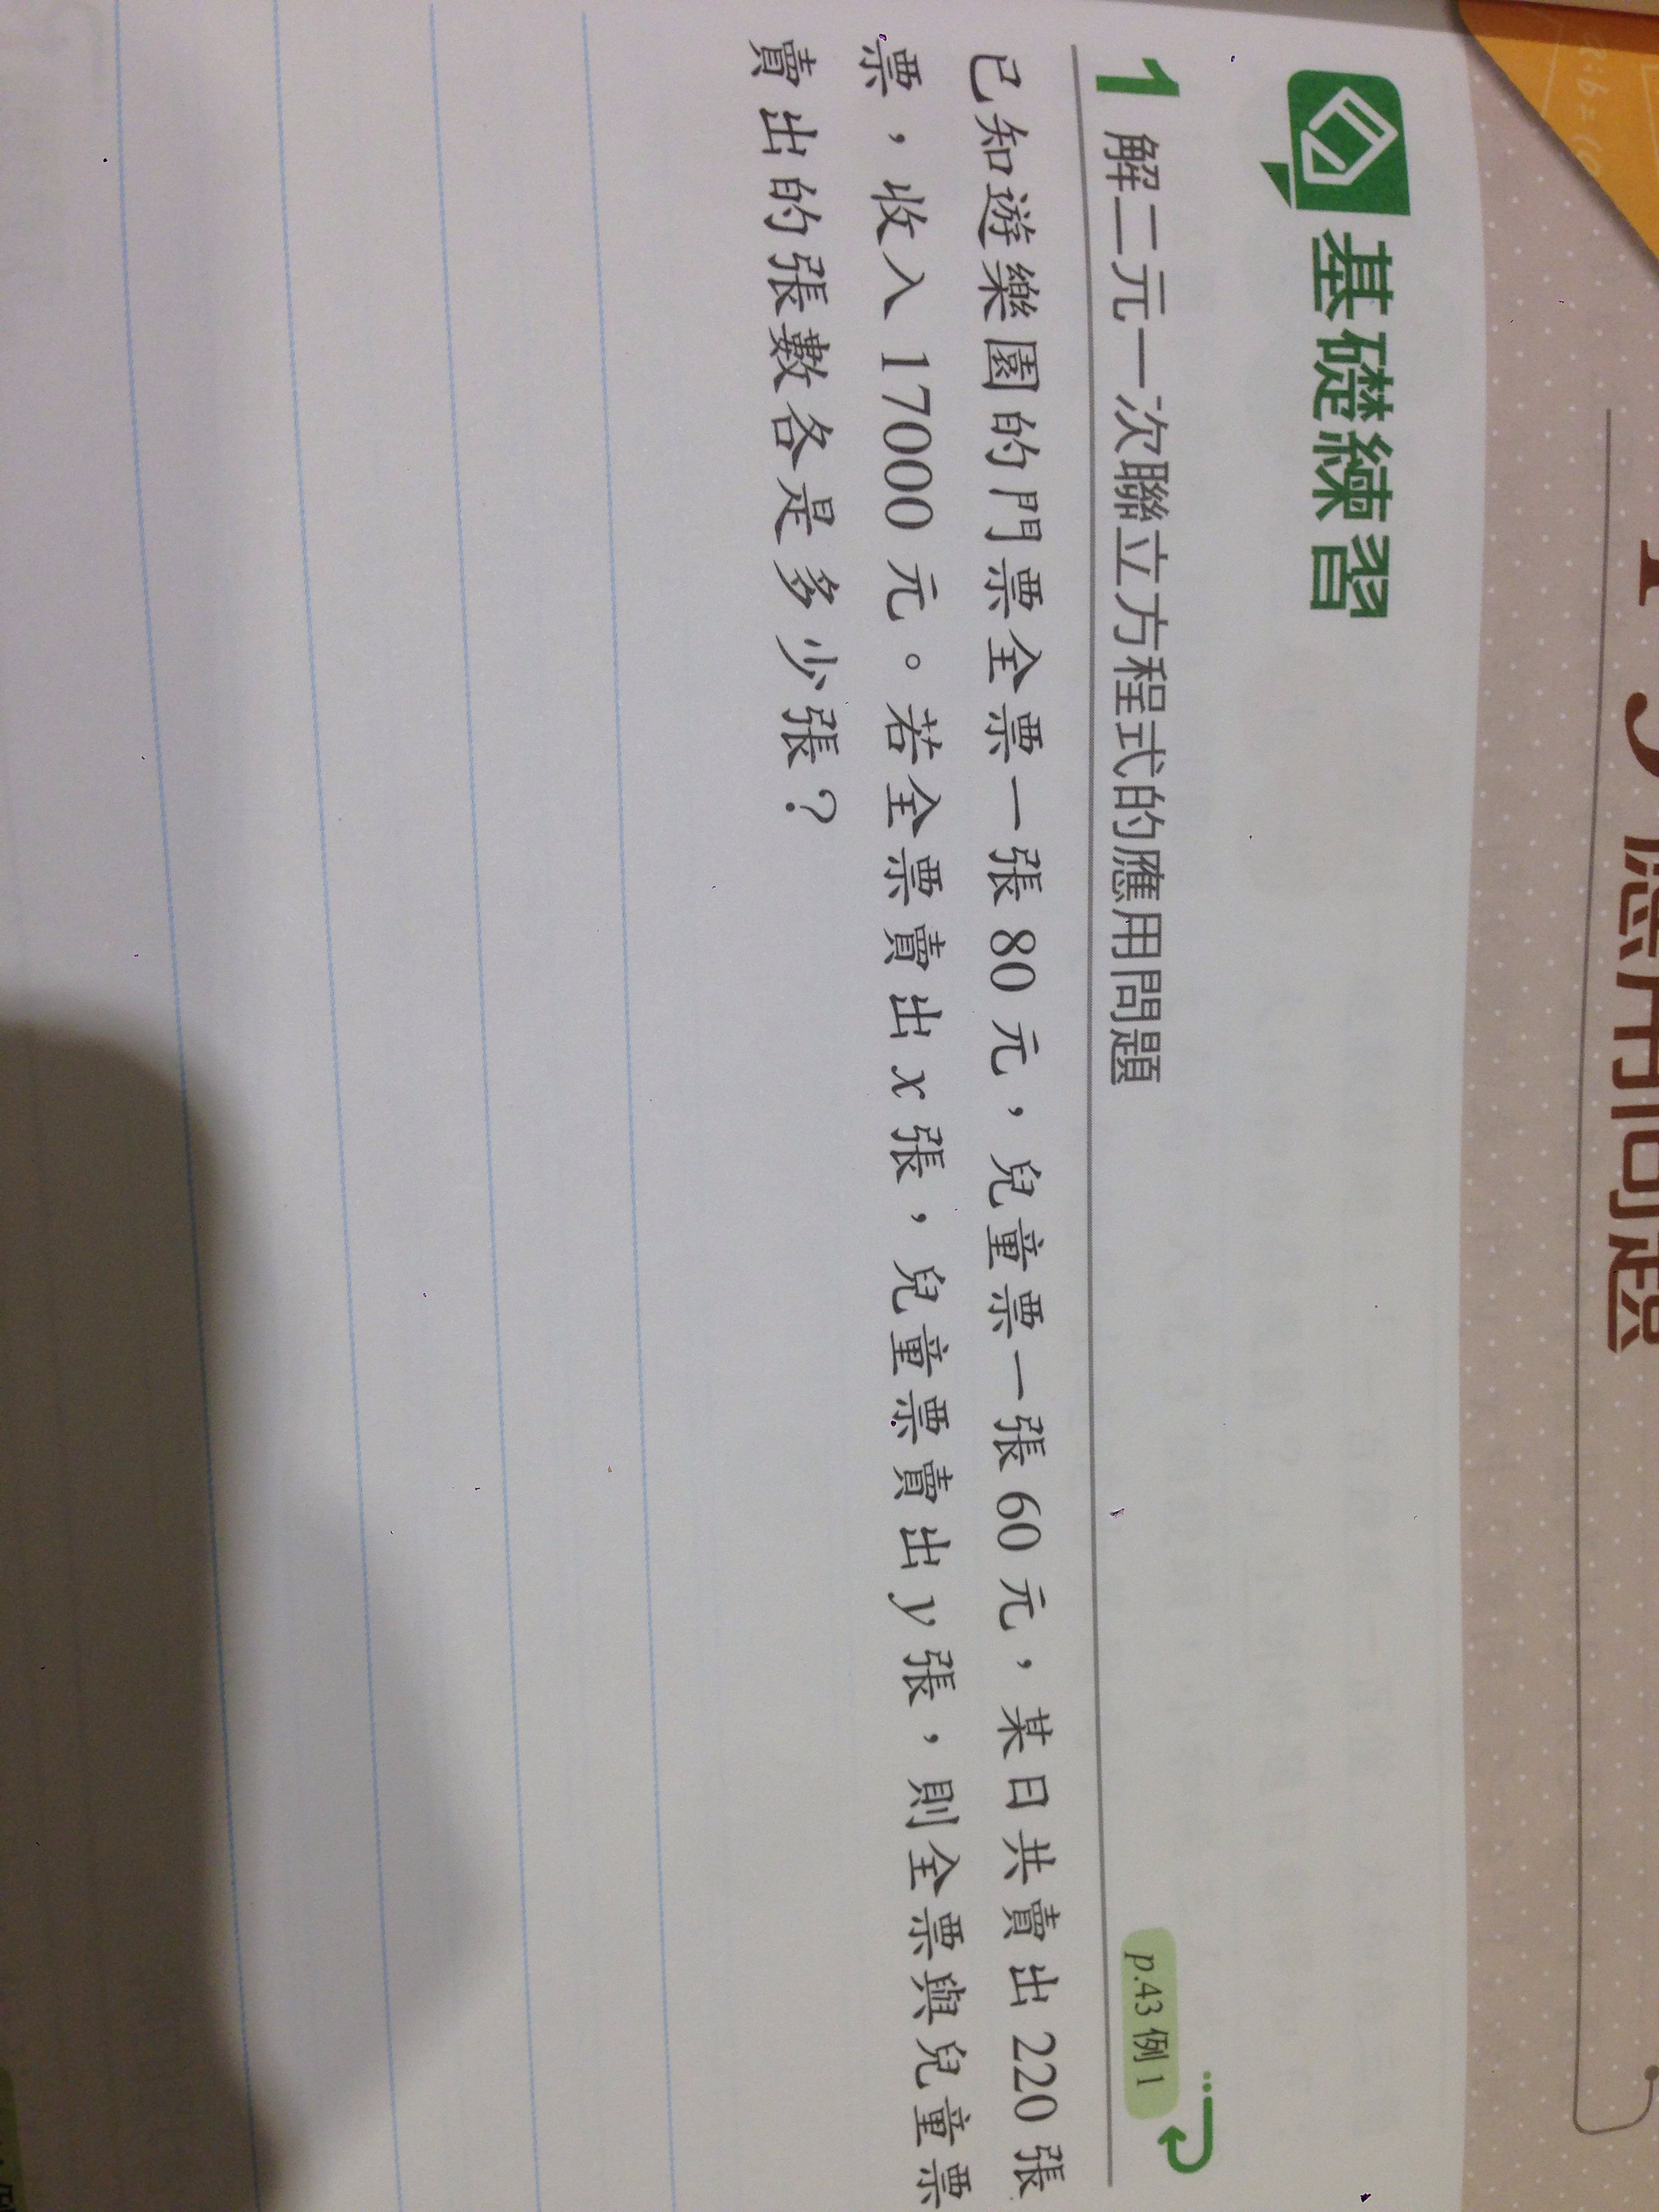 應用問題
基礎練習
1 解二元一次聯立方程式的應用問題 p.43 例 1
已知遊樂園的門票全票一張 80 元，兒童票一張 60 元，某日共賣出 220 張
票，收入 17000 元。若全票賣出 x 張，兒童票賣出 y 張，則全票與兒童票
賣出的張數各是多少張？